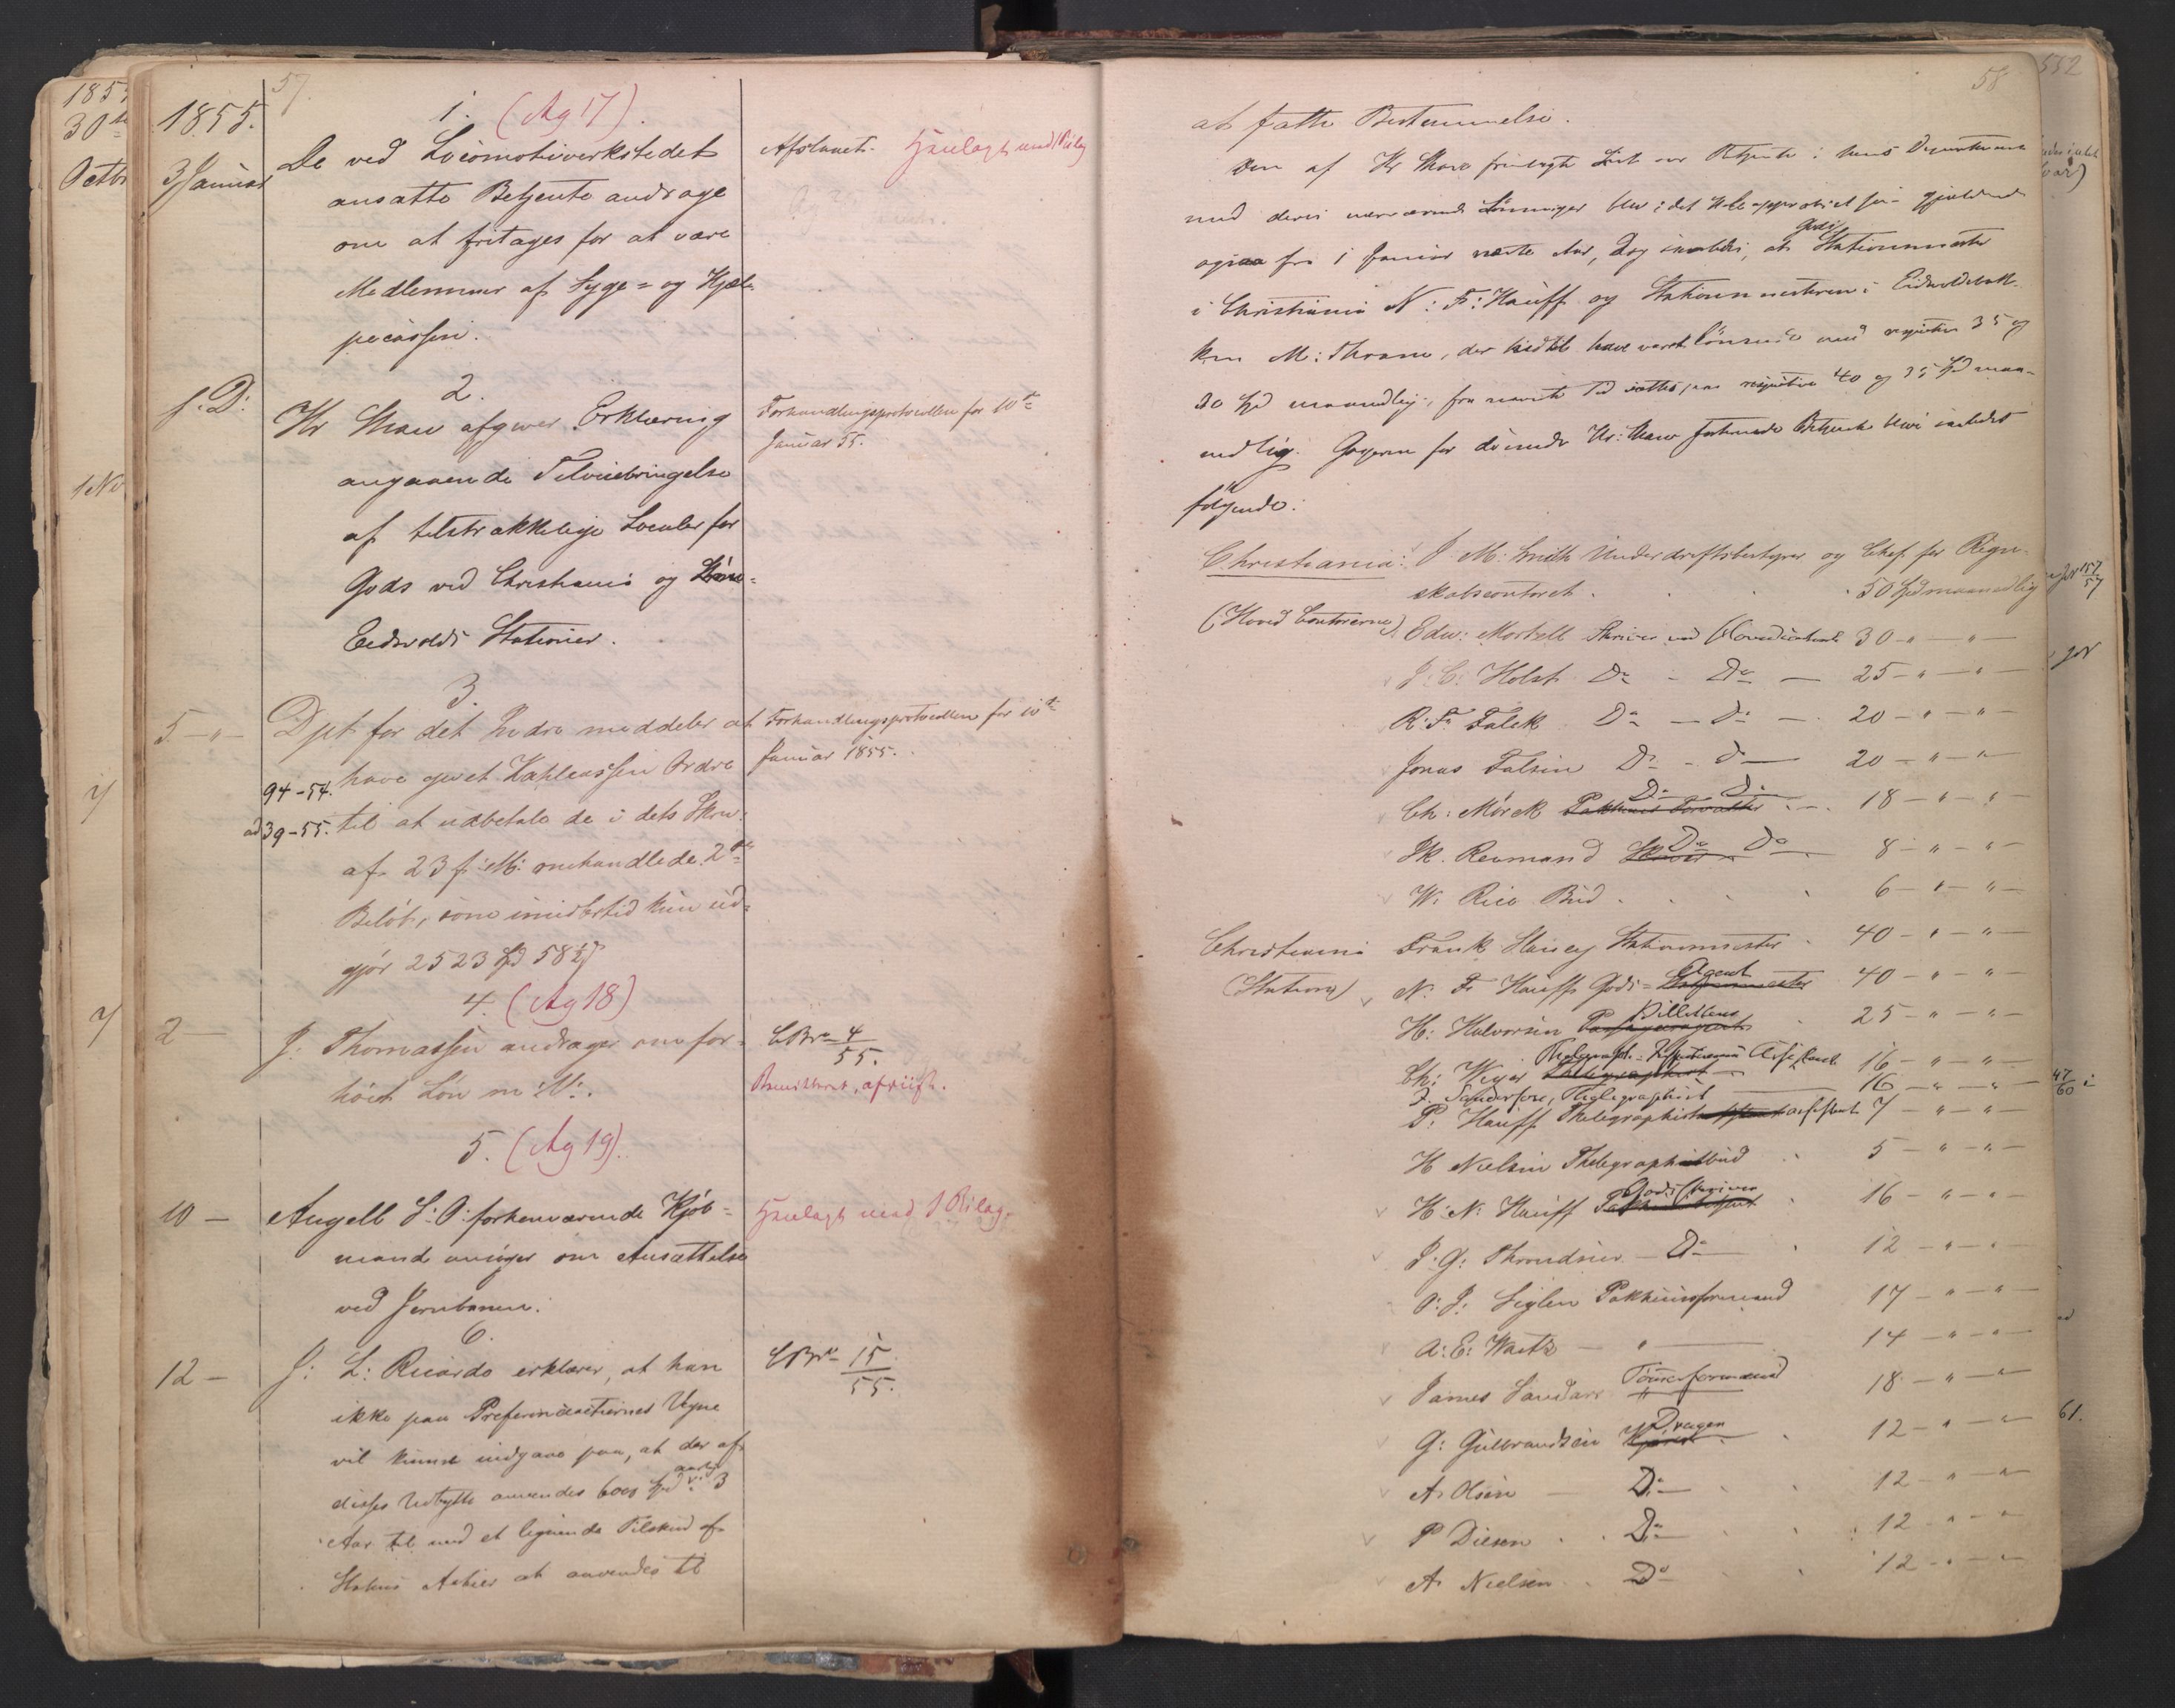 57.
1855.
1. (Ag 17).
3 Januar
De ved Locomotivverkstedet
ansatte Betjente andrage
om at fritages for at være
Medlemmer af Syge= og Hjæl-
pecassen.
Afslaaet. Henlagt med 1 Bilag
2.
f. D:
Hr Shaw afgiver Erklæring
angaaende Tilveiebringelse
af tilstrækkelige Localer for
Gods ved Christiania og
Eidsvolds Stationer.
Forhandlingsprotocollen for 10de
Januar 55.
3.
5 - " -
Dpt. for det Indre meddeler at
94-54. have givet Zahlcassen Ordre
ad 39-55. til at udbetale de i dets Skriv:
af 23 f: M: omhandlede 2de
Beløb, som imidlertid kun ud=
gjør 2523 Spd 58½ ß
Forhandlingsprotocollen for 10de
Januar 1855.
4. (Ag 18)
2 —
J: Thomassen andrager om for=
høiet Løn m: V:.
CBrv 4/55.
Remitteret, afskrift.
5. (Ag 19).
10 —
Angell S: O: forhenværende Kjøb=
mand ansøger om Ansættelse
ved Jernbanen.
Henlagt med 1 Bilag.
6.
12 —
J: L: Ricardo erklærer, at han
ikke paa Preferenceactiernes Vegne
vil kunne indgaae paa, at der af
disses Udbytte anvendes 6000 Spd aarlig i 3
Aar til med et lignende Tilskud af
Statens Actier at anvendes til
CBrv 15/55.
58
at fatte Bestemmelse.
Den af Hr Shaw fremlagte List over Betjente i hans Departement
med deres nærværende Lønninger blev i det Hele approberet som gjældende
ogsaa fra 1 Januar næste Aar, dog saaledes, at Gods Stationsmester
i Christiania N: F: Hauff og Stationsmesteren i Eidsvoldbak-
ken M: Thrane, der hidtil have været lønnede med respective 35 og
30 Spd maanedlig, fra nævnte Tid sættes paa respective 40 og 35 Spd maa-
nedlig. Gagerne for de under Hr: Shaw sorterende Betjente blive saaledes
følgende:
Christiania: J. M. Smith Underdriftsbestyrer og Chef for Regn-
skabscontoret . . 50 Spd maanedlig
(Hoved Contorerne) Edw: Mortell Skriver ved Hovedcontoret 30 - " - " -
J. C. Holst Do - Do - 25 - " - " -
R. F. Falck Do - Do - 20 - " - " -
Jonas Falsen Do - Do 20 - " - " -
Do Do
Ch: Mörck Pakhuus Forvalter 18 - " - " -
Sk. Reumand Skriver Do Do 8 - " - " -
W. Rico Bud . . . 6 - " - " -
Christiania Frank Haney Stationsmester . 40 - " - " -
(Station) N. F. Hauff Gods= Stationsmester Agent 40 - " - " -
Billetteur
H: Halvorsen Passageeragent 25 - " - " -
Ch: Weyer Thelegraphist Assistent 16 - " - " -
J. Sanderson, Thelegraphist 16 - " - " -
P: Hauff Thelegraphist assistent 7 - " - " -
H Nielsen Thelegraphbud . 5 - " - " -
Gods Skriver
H: N: Hauff Pakhuusbetjent 16 - " - " -
J: G: Throndsen - Do - 12 - " - " -
O: J: Siglen Pakhuusformand 17 - " - " -
A: E: Waitz - " - 14 - " - " -
James Sandars Tomteformand 18 - " - " -
G: Gulbrandsen Kjører Drager 12 - " - " -
A. Olsen - Do - 12 - " - " -
P Diesen . . Do - 12 - " - " -
A. Nielsen . . Do 12 - " - " -
1855
30te
Octbr
1 Nov
7
7
552
157/57
47/60
61.